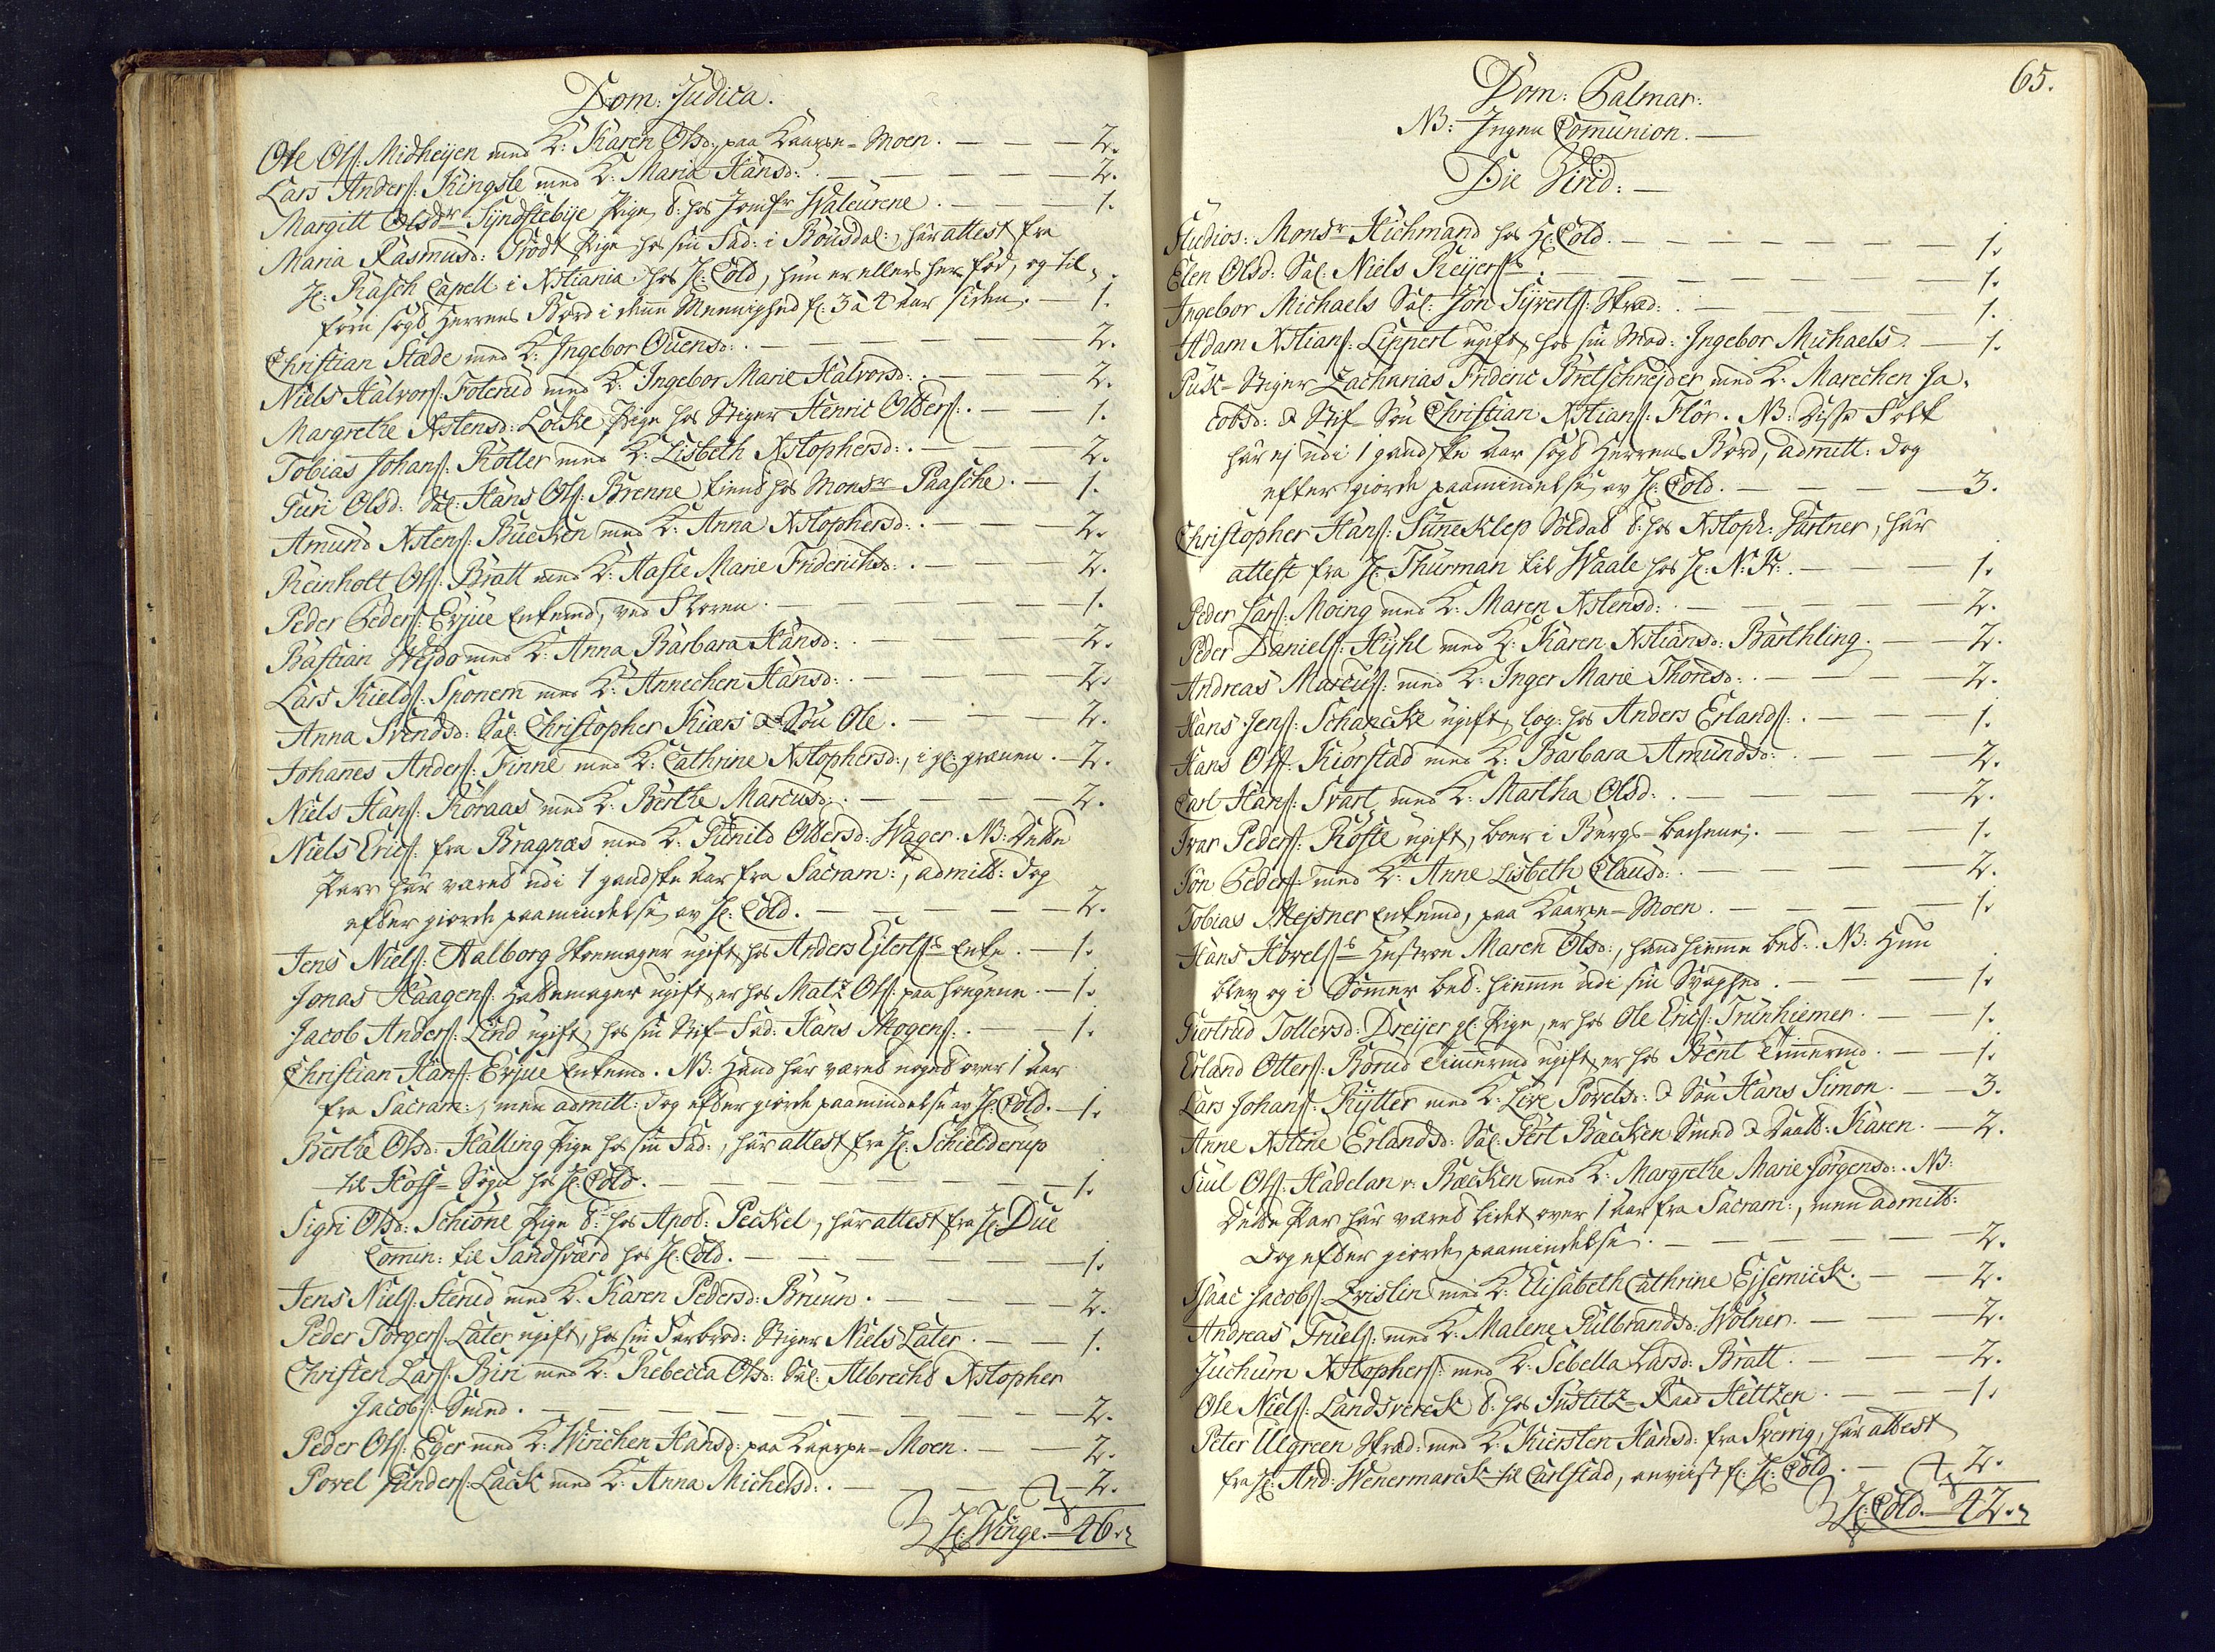 Dom: Judica.
Ole Ols: Midheijen med K: Karen Olsd:, paa Kaarpe-Moen. — — — 2.
Lars Anders: Kingste med K: Maria Hansd: . — — — — — 2.
Margitt Olsdr Syndstebije Pige, t: hos Jomfr Waleurene . — — — 1.
Maria Rasmusd: Trodt Pige hos sin Fad: i Bousdal:, har attest fra
H: Rasch Capell i Xstiania hos H: Cold, hun er ellers her fød, og til-
forn søgt Herrens Bord i denne Meenighed f: 3 a 4 aar siden. — 1.
Christian Stæde med K: Ingebor Ouensd: . — — — — — 2.
Niels Halvors: Foterud med K: Ingebor Marie Halvorsd: . — — — 2.
Margrethe Xstensd: Locke Pige hos Stiger Henric Olders: . — — 1.
Tobias Johans: Rotter med K: Lisbeth Xstophersd: . — — — — 2.
Guri Olsd: Sal: Hans Ols: Brenne tiend hos Monsr Paasche. — 1.
Amund Xstens: Buecken med K: Anna Xstophersd: . — — — 2.
Reinholt Ols: Bratt med K: Aaste Marie Friderichsd: . — — — 2.
Peder Peders: Evjue Enkemd, ved Skoven. — — — — — 1.
Bastian Weido med K: Anna Barbara Hansd: — — — — 2.
Lars Kields: Sponem med K: Annechen Hansd: . — — — — 2.
Anna Svendsd: Sal: Christopher Kiærs & Søn Ole. — — — 2.
Johanes Anders: Finne med K: Cathrine Xstophersd:, i gl: grauen. — 2.
Niels Hans: Røraas med K: Berthe Marcusd: . — — — — — 2.
Niels Erics: fra Bragnæs med K: Gunild Oldersd: Wager. NB: Dette
Parr har væred udi 1 gandske aar fra Sacram:, admitt: dog
efter giorde paamindelse av H: Cold. — — — — — 2.
Jens Niels: Aalborg Skomager ugift, hos Anders Ejlertss Enke. — 1.
Jonas Haagens: Hattemager ugift, er hos Matz Ols: paa Haugene. — 1.
Jacob Anders: Lind ugift, hos sin Stif-Fad: Hans Mogens: . 1.
Christian Hans: Evjue Enkemd. NB: Hand har væred noged over 1 aar
fra Sacram:, men admitt: dog efter giorde paamindelse av H: Cold. — 1.
Berthe Olsd: Halling Pige hos sin Fad:, har attest fra H: Schielderup
til Hoff-Sogn hos H: Cold. — — — — — — — 1.
Sigri Olsd: Schiönne Pige t: hos Apod: Peckel, har attest fra H: Due
Comin: til Sandsværd hos H: Cold. — — — — — — 1.
Jens Niels: Sterud med K: Karen Pedersd: Bruun. — — — — 2.
Peder Torgers: Låter ugift, hos sin Farbrod: Stiger Niels Låter. — — 1.
Christen Lars: Biri med K: Rebecca Olsd: Sal: Albrecht Xstopher
Jacobs: Smed. — — — — — — — — — 2.
Peder Ols: Eger med K: Wirichen Hansd: paa Kaarpe-Moen. — — 2.
Povel Gunders: Lack med K: Anna Michelsd: . — — — 2.
H: Winge. — 46.
65.
Dom: Palmar:
NB: Ingen Comunion. —
Die Virid: —
Studios: Monsr Hichmand hos H: Cold. — — — — — — 1.
Elen Olsd: Sal: Niels Reijerss . — — — — — — 1.
Ingebor Michaels Sal: Jon Syverts: Skræd: . — — — — 1.
Adam Xstians: Lippert ugift, hos sin Mod: Ingebor Michaels. — 1.
Puk-Stiger Zacharias Frideric Bretschnejder med K: Marechen Ja-
cobsd: & Stif-Søn Christian Xstians: Flor. NB: Disse Folk
har ej udi 1 gandske aar søgt Herrens Bord, admitt: dog
efter giorde paamindelse av H: Cold. — — — — 3.
Christopher Hans: Suneklep Soldat t: hos Xstoph: Gartner, har
attest fra H: Thurman til Waale hos H: N: K: . — — — 1.
Peder Lars: Moing med K: Maren Xstensd: . — — — — — 2.
Peder Daniels: Hyhl med K: Karen Xstiansd: Barthling. — — 2.
Andreas Marcus: med K: Inger Marie Thoresd: . — — — 2.
Hans Jens: Schancke ugift, log: hos Anders Erlands: . — — 1.
Hans Ols: Kiorstad med K: Barbara Amundsd: . — — — 2.
Carl Hans: Svart med K: Martha Olsd: . — — — — — 2.
Ivar Peders: Roste ugift, boer i Bergs-bachene. — — — — 1.
Jon Peders: med K: Anne Lisbeth Clausd: . — — — — 2.
Tobias Mejsner Enkemd, paa Kaarpe-Moen. — — — — 1.
Hans Hovelss Hustroe Maren Olsd:, hand hiemme bet: . NB: Hun
blev og i Sommer bet: hiemme udi sin Svaghed . — — — 1.
Giertrud Tollevsd: Dreijer gl: Pige, er hos Ole Erics: Trunhiemer. — 1.
Erland Otters: Borud Tømmermd ugift, er hos Bent Tømmermd. — 1.
Lars Johans: Rytter med K: Live Povelsd: & Søn Hans Simon. — 3.
Anne Xstine Erlandsd: Sal: Gert Backen Smed & Daatt: Karen. — 2.
Giul Ols: Hadelan v: Bæcken med K: Margrethe Marie Jørgensd: . NB:
Dette Par har væred lidet over 1 aar fra Sacram:, men admitt:
dog efter giorde paamindelse. — — — — — — 2.
Isaac Jacobs: Qvislin med K: Elisabeth Cathrine Ejsemick. — — 2.
Andreas Truels: med K: Malene Gulbrandsd: Wolner. — — — 2.
Juchum Xstophers: med K: Sebella Larsd: Bratt. — — — 2.
Ole Niels: Landsverck t: hos Justitz-Raad Heltzen. — — — 1.
Peter Ulgreen Skræd: med K: Kiersten Hansd: fra Sverrig, har attest
fra H: And: Wenermarck til Carlstad, anviist f: H: Cold. — 2.
H: Cold. — 42.